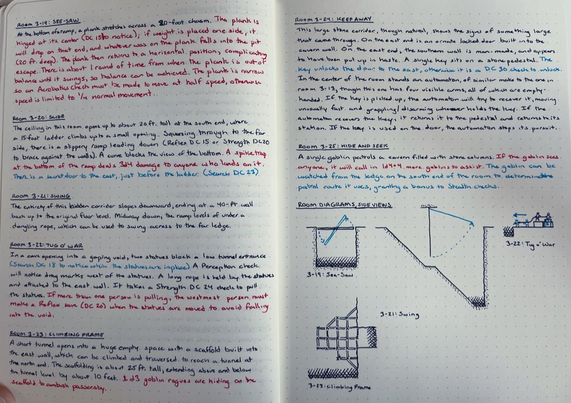 ROOM 3-19: SEE-SAW
At the bottom of a ramp, a plank stretches across a 20-foot chasm. The plank is
hinged at its center (DC 15 to notice), if weight is placed one side, it
will drop on that end, and whatever was on the plank falls into the pit
(20 ft. deep). The plank then returns to a horizontal position, complicating
escape. There is about 1 round of time from when the plank is out of
balance until it swings, so balance can be achieved. The plank is narrow
so an Acrobatics check must be made to move at half speed, otherwise
speed is limited to 1/4 normal movement.
ROOM 3-20: SLIDE
The ceiling in this room opens up to about 20 ft. tall at the south end, where
a 15-foot ladder climbs up to a small opening. Squeezing through to the far
side, there is a slippery ramp leading down (Reflex DC 15 or Strength DC 20
to brace against the walls). A curve blocks the view of the bottom. A spike trap
at the bottom of the ramp deals 3d4 damage to anyone who lands on it.
There is a secret door to the east, just before the ladder (Search DC 23)
ROOM 3-21: SWING
The entirety of this hidden corridor slopes downward, ending at a 40-ft. wall
back up to the original floor level. Midway down, the ramp levels of under a
dangling rope, which can be used to swing across to the far ledge.
ROOM 3-22: TUG O' WAR
In a cavern opening into a gaping void, two statues block a low tunnel entrance
(Search DC 18 to notice when the statues are in place) A Perception check
will notice drag marks west of the statues. A long rope is held by the statues
and attached to the east wall. It takes a Strength DC 24 check to pull
the statues. If more than one person is pulling, the westmost person must
make a Reflex save (DC 20) when the statues are moved to avoid falling
into the void.
ROOM 3-23: CLIMBING FRAME
A short tunnel opens into a huge empty space with a scaffold built into
the east wall, which can be climbed and traversed to reach a tunnel at
the north end. The scaffolding is about 25 ft. tall, extending above and below
the tunnel level by about 10 feet. 1d3 goblin rogues are hiding on the
scaffold to ambush passersby.
ROOM 3-24: KEEP AWAY
This large stone corridor, though natural, shows the signs of something large
that came through. On the east end is an ornate locked door built into the
cavern wall. On the east end, the southern wall is man-made, and appears
to have been put up in haste. A single key sits on a stone pedestal. The
key unlocks the door to the east, otherwise it is a DC 30 check to unlock.
In the center of the room stands an automaton of similar make to the one in
room 3-13, though this one has four visible arms, all of which are empty-
handed. If the key is picked up, the automaton will try to recover it, moving
unusually fast and grappling/disarming whoever holds the key. If the
automaton recovers the key it returns it to the pedestal and returns to its
station. If the key is used on the door, the automaton stops its pursuit.
ROOM 3-25: HIDE AND SEEK
A single goblin patrols a cavern filled with stone columns. If the goblin sees
anyone, it will call in 1d4+4 more goblins to assist. The goblin can be
watched from the ledge on the south end of the room to determine the
patrol route it uses, granting a bonus to Stealth checks.
ROOM DIAGRAMS, SIDE VIEWS
3-19: See-Saw
3-21: Swing
3-22: Tug o' War
3-23: Climbing Frame